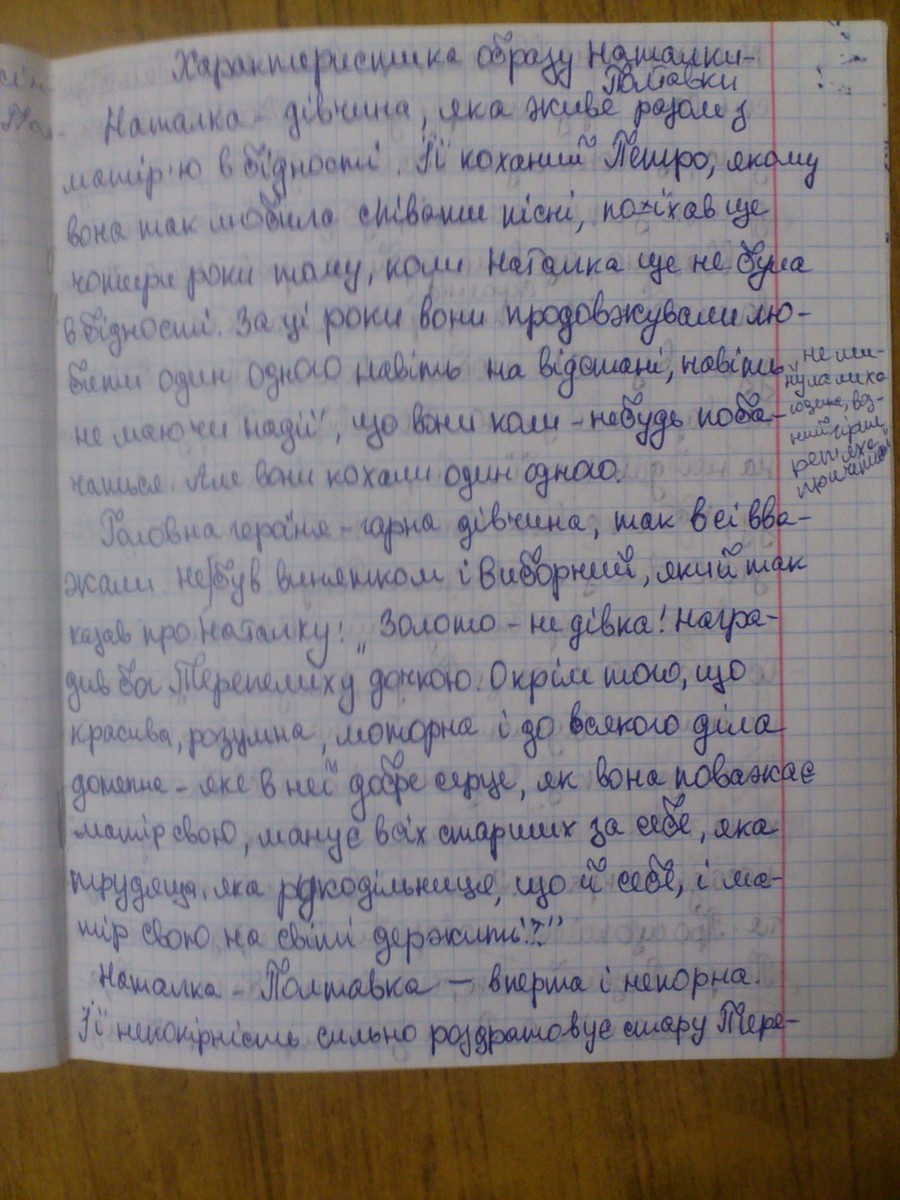 Характеристика образу Наталки-
Полтавки
Наталка - дівчина, яка живе разом з
матір'ю в бідності. Її коханий Петро, якому
вона так любила співати пісні, поїхав ще
чотири роки тому, коли Наталка ще не була
в бідності. За ці роки вони продовжували лю-
бити один одного навіть на відстані, навіть
не маючи надії, що вони коли-небудь поба-
чаться. Але вони кохали один одного.
Головна героїня - гарна дівчина, так всі вва-
жали не був винятком і Виборний, який так
казав про Наталку: „Золото - не дівка! Награ-
див бог Терпелиху дочкою. Окрім того, що
красива, розумна, моторна і до всякого діла
дотепна - яке в неї добре серце, як вона поважає
матір свою, шанує всіх старших за себе, яка
трудяща, яка рукодільниця, що й себе, і ма-
тір свою на світі держить!?"
Наталка - Полтавка — вперта і непокрна.
Її непокірність сильно роздратовує стару Терпе-
не ми-
нула лиха
година,